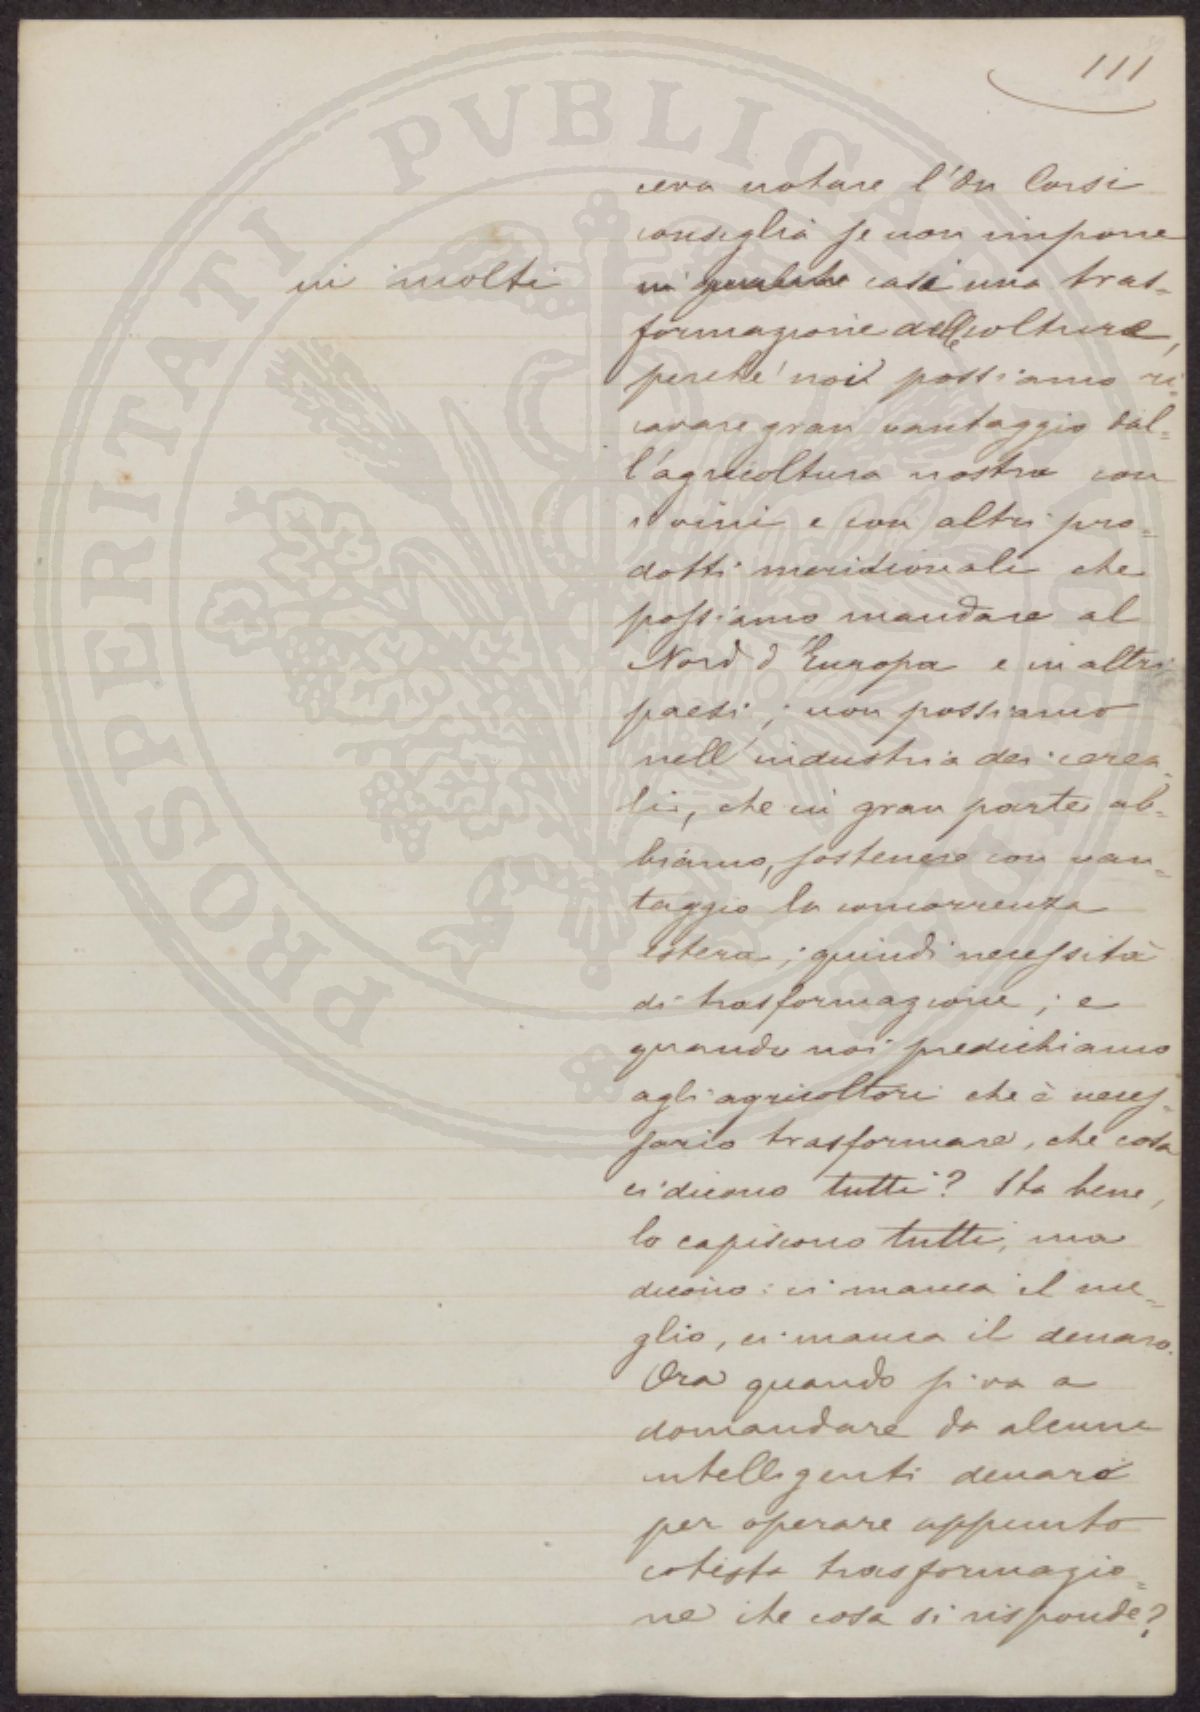 111
ceva notare l'On Corsi
consiglia se non impone
in molti
in qualche casi una tras=
formazione delle colture,
perchè noi possiamo ri=
cavare gran vantaggio dal=
l'agricoltura nostra con
i vini e con altri pro=
dotti meridionali che
possiamo mandare al
Nord d'Europa e in altri
paesi; non possiamo
nell'industria dei cerea=
li, che in gran parte ab=
biamo, sostenere con van=
taggio la concorrenza
estera; quindi necessità
di trasformazione; e
quando noi predichiamo
agli agricoltori che è neces=
sario trasformare, che cosa
ci dicono tutti? Sta bene,
lo capiscono tutti, ma
dicono: ci manca il me=
glio, ci manca il denaro.
Ora quando si va a
domandare da alcune
intelligenti denaro
per operare appunto
cotesta trasformazio=
ne che cosa si risponde?
PROSPERITATI PVBLICAE